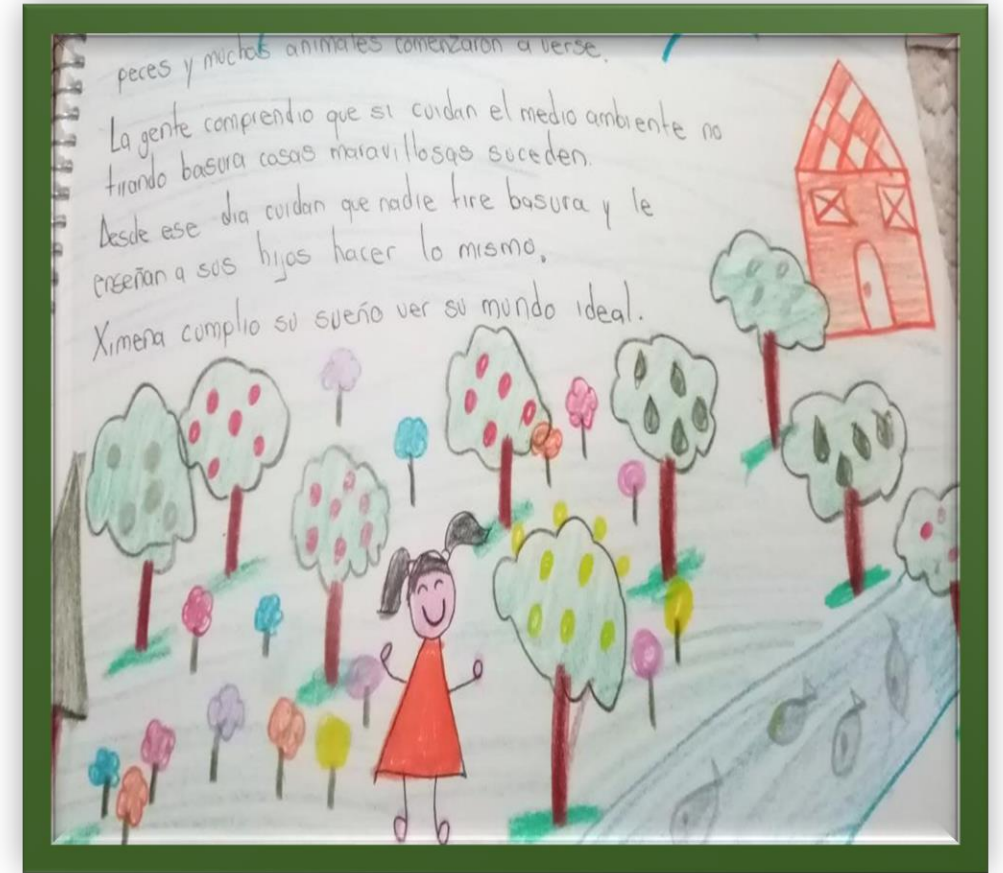 peces y muchos animales comenzaron a verse.
La gente comprendio que si cuidan el medio ambiente no
tirando basura cosas maravillosas suceden.
Desde ese dia cuidan que nadie tire basura y le
enseñan a sus hijos hacer lo mismo.
Ximena cumplio su sueño ver su mundo ideal.